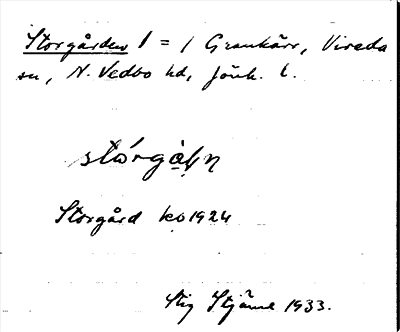 Storgården 1 = 1 Grankärr, Vireda
sn, N. Vedbo hd, Jönk. l.
Storgård ko 1924
Stig Stjärne 1933.